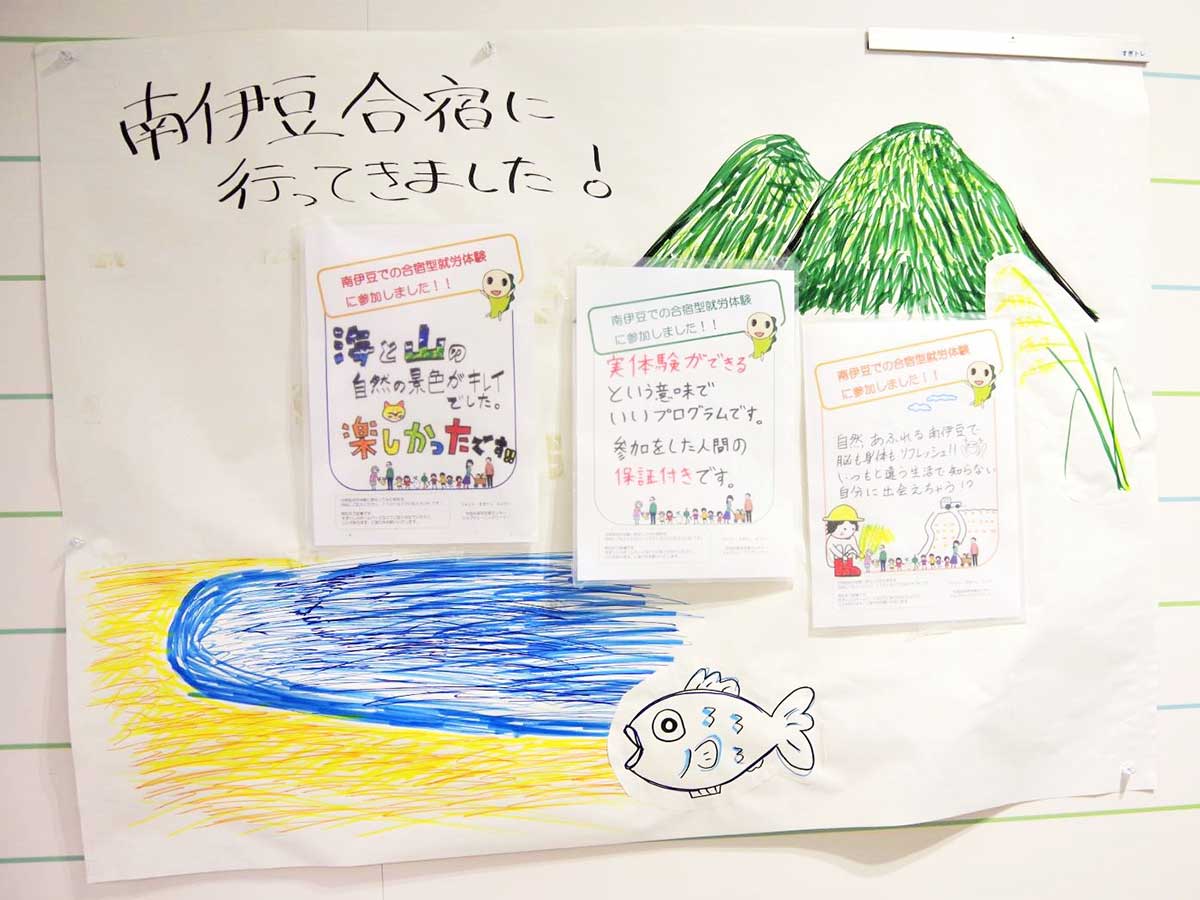 すぎトレ
南伊豆合宿に
行ってきました!
南伊豆での合宿型就労体験
に参加しました!!
海と山の
自然の景色がキレイ
でした。
楽しかったです!!
南伊豆での合宿型就労体験
に参加しました!!
実体験ができる
という意味で
いいプログラムです。
参加をした人間の
保証付きです。
南伊豆での合宿型就労体験
に参加しました!!
自然あふれる南伊豆で
脳も身体もリフレッシュ!!
いつもと違う生活で知らない
自分に出会えちゃう!?